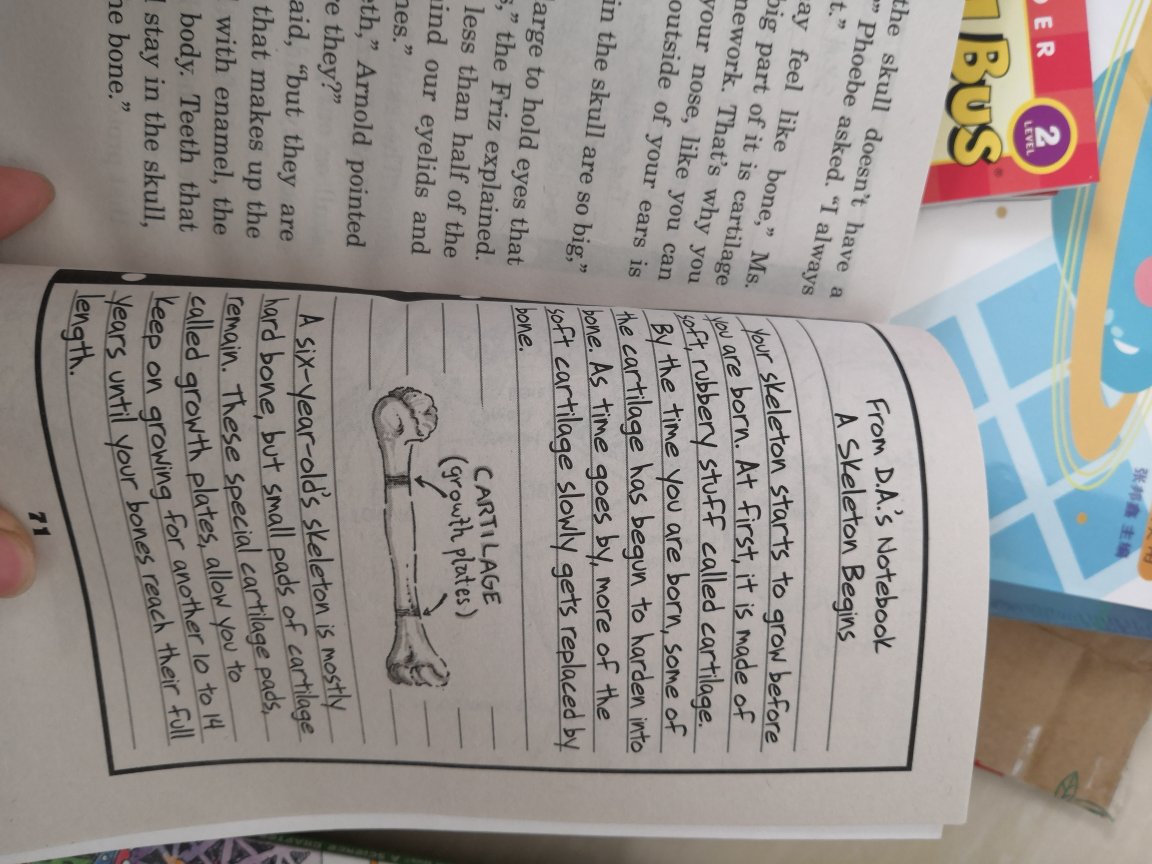 the skull doesn't have a
" Phoebe asked. "I always
t."
ay feel like bone," Ms.
big part of it is cartilage
nework. That's why you
your nose, like you can
outside of your ears is
in the skull are so big,"
arge to hold eyes that
s," the Friz explained.
less than half of the
ind our eyelids and
nes."
eth," Arnold pointed
e they?"
aid, "but they are
that makes up the
with enamel, the
body. Teeth that
stay in the skull,
he bone."
From D.A.'s Notebook
A Skeleton Begins
Your skeleton starts to grow before
you are born. At first, it is made of
soft, rubbery stuff called cartilage.
By the time you are born, some of
the cartilage has begun to harden into
bone. As time goes by, more of the
soft cartilage slowly gets replaced by
bone.
CARTILAGE
(growth plates)
A six-year-old's skeleton is mostly
hard bone, but small pads of cartilage
remain. These special cartilage pads,
called growth plates, allow you to
keep on growing for another 10 to 14
years until your bones reach their full
length.
71
DER
BUS
LEVEL
2
张邦鑫 主编